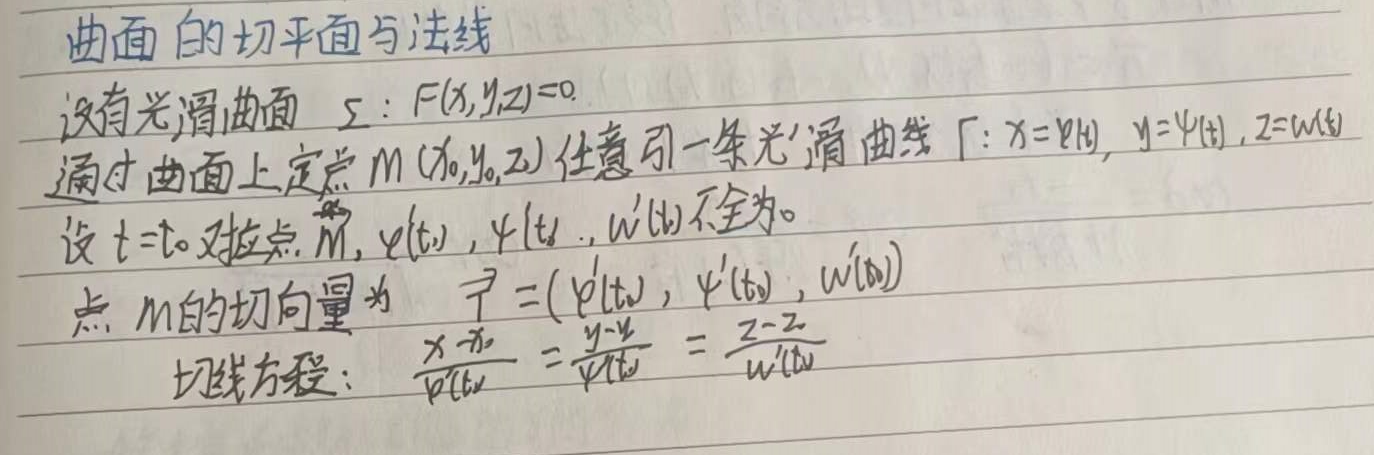 曲面的切平面与法线
设有光滑曲面 Σ: F(x,y,z)=0.
通过曲面上定点 M(x₀,y₀,z₀) 任意引一条光滑曲线 Γ: x=φ(t), y=ψ(t), z=ω(t)
设 t=t₀ 对应点 M, φ'(t₀), ψ'(t₀), ω'(t₀) 不全为0
点 M的切向量为 T⃗ = (φ'(t₀), ψ'(t₀), ω'(t₀))
切线方程: (x-x₀)/φ'(t₀) = (y-y₀)/ψ'(t₀) = (z-z₀)/ω'(t₀)